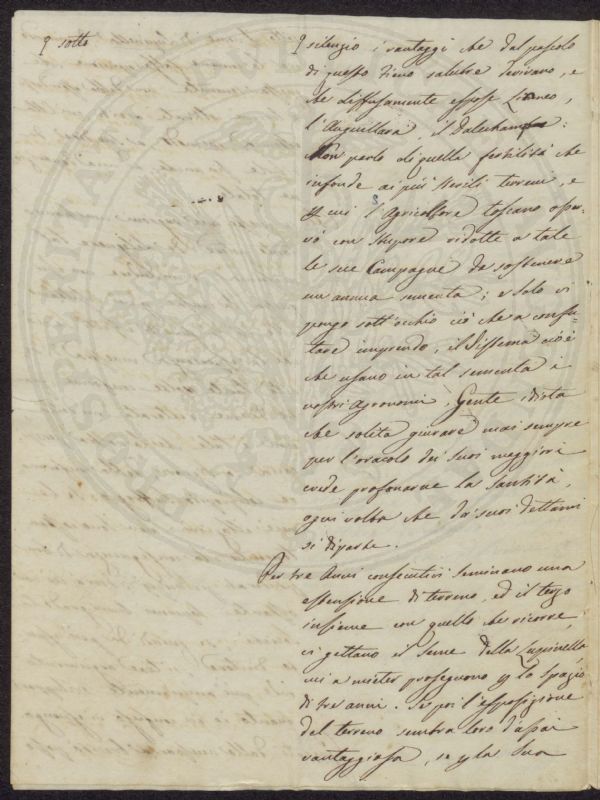 q sotto
q silenzio i vantaggi che dal pascolo
di questo fieno salubre derivano, e
che diffusamente espose Linneo,
l'Anguillara, il Dalechampe:
Non parlo di quella fertilità che
infonde ai più sterili terreni, e
cui l'Agricoltore toscano osser-
vò con stupore ridotte a tale
le sue Campagne da sostenere
un annua sementa; e solo vi
pongo sott'occhio ciò che a confu-
tare imprendo, il Sistema cioè
che usano in tal sementa i
nostri Agronomi. Gente idiota
che solita giurare mai sempre
per l'oracolo dei suoi maggiori
crede profanarne la Santità,
ogni volta che da' suoi dettami
si diparte.
Per tre Anni consecutivi seminano una
estensione di terreno, ed il terzo
insieme con quello che ricorre,
vi gettano il Seme della Lupinella,
mister proseguono lo spazio
di tre anni. Se poi l'esposizione
del terreno sembra loro d'assai
vantaggiosa, se la sua